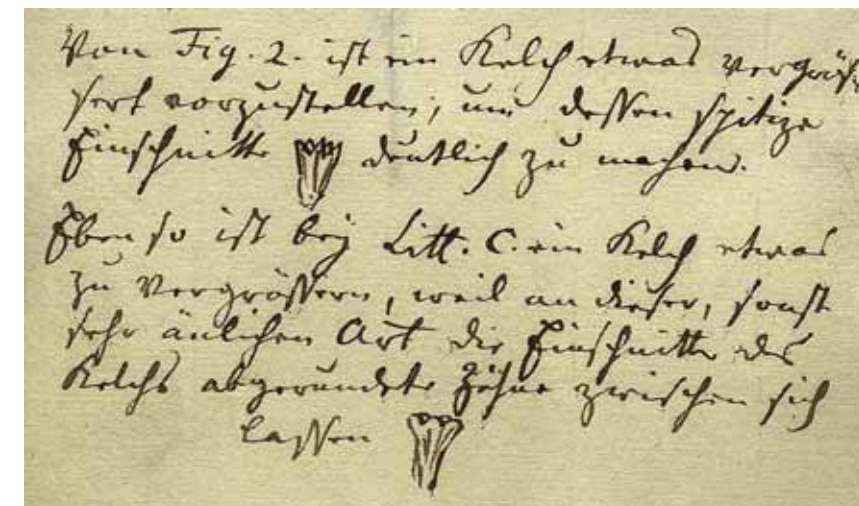 Von Fig. 2. ist ein Kelch etwas vergröss-
sert vorzustellen, um dessen spitze
Einschnitte deutlich zu machen.
Eben so ist bey Litt. C. ein Kelch etwas
zu vergrössern, weil an dieser, sonst
sehr änlichen Art die Einschnitte des
Kelchs abgerundete Zähne zwischen sich
lassen